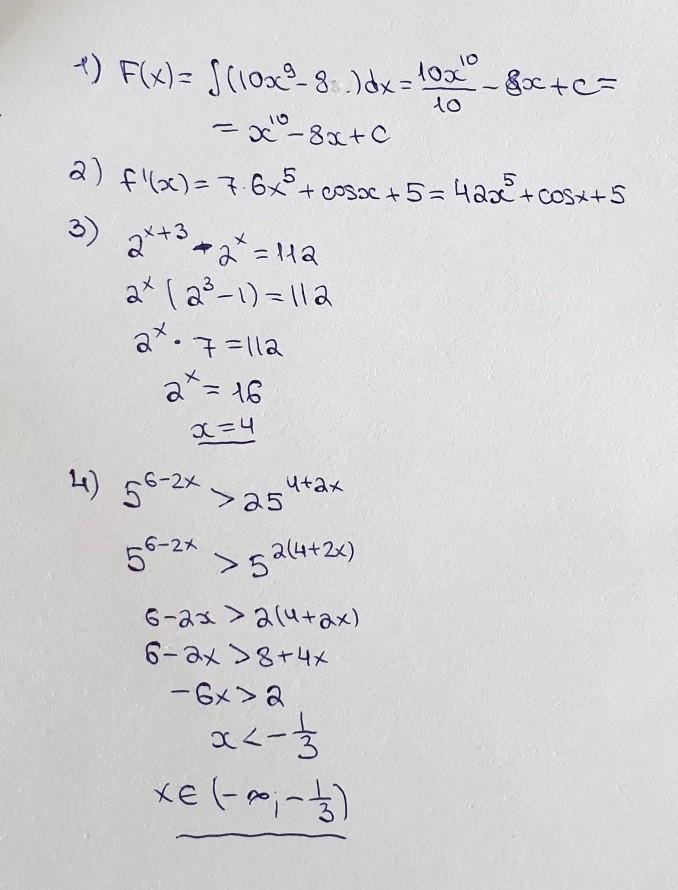 1) F(x) = ∫(10x⁹ - 8 .)dx = 10x¹⁰/10 - 8x + c =
= x¹⁰ - 8x + c
2) f'(x) = 7·6x⁵ + cosx + 5 = 42x⁵ + cosx + 5
3) 2^(x+3) - 2^x = 112
2^x (2³ - 1) = 112
2^x · 7 = 112
2^x = 16
x = 4
4) 5^(6-2x) > 25^(4+2x)
5^(6-2x) > 5^(2(4+2x))
6-2x > 2(4+2x)
6-2x > 8+4x
-6x > 2
x < -1/3
x ∈ (-∞; -1/3)